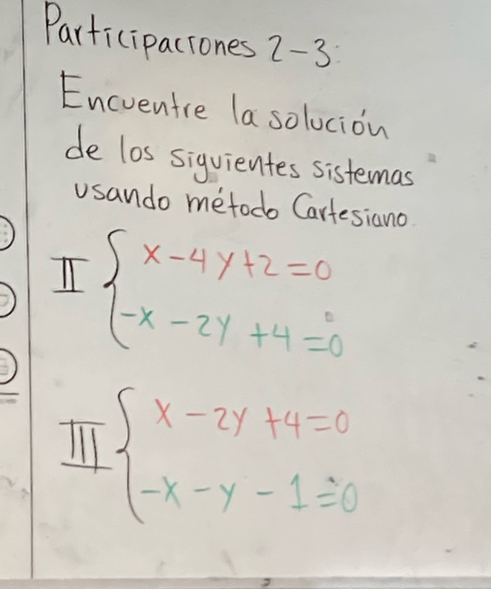 Participaciones 2-3:
Encuentre la solución
de los siguientes sistemas
usando método Cartesiano.
II { x - 4y + 2 = 0
-x - 2y + 4 = 0
III { x - 2y + 4 = 0
-x - y - 1 = 0